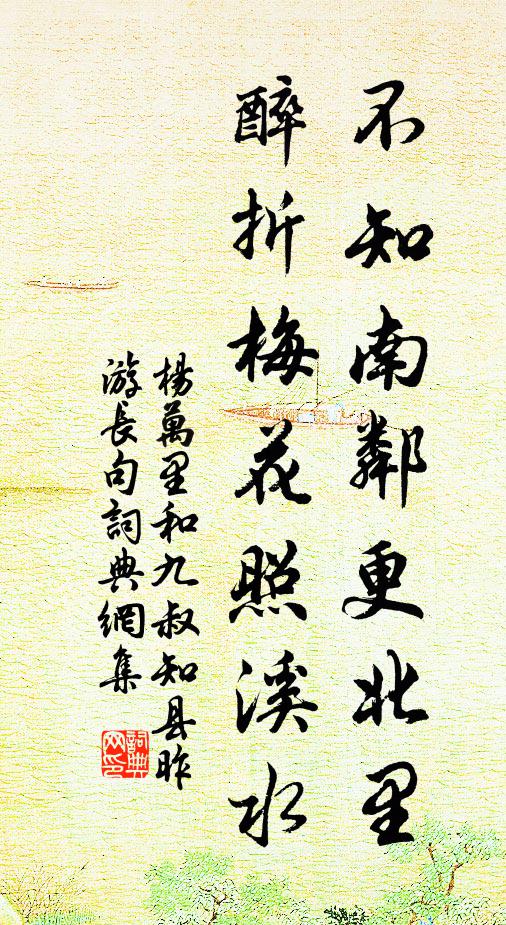 不知南鄰更北里
醉折梅花照溪水
楊萬里和九叔知县昨
游長句詞典網集
詞典
网印